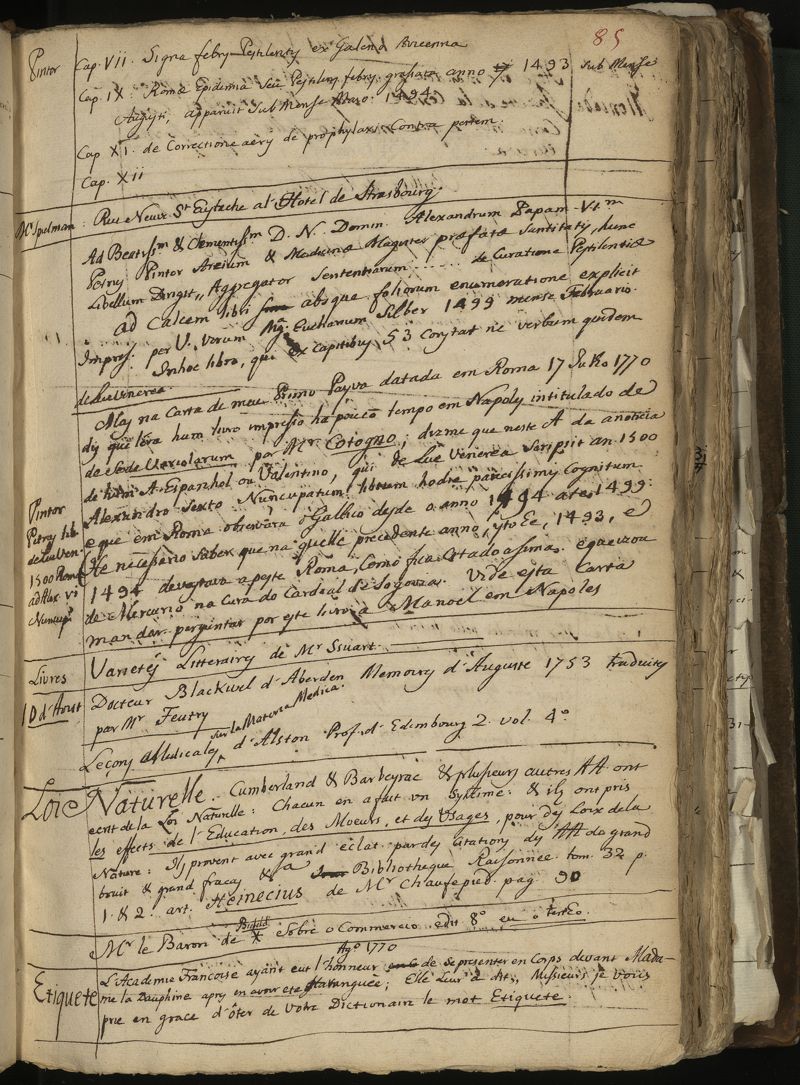 85
Pintor
Cap. VII. Signa febry Pestilenty ex Galeno Avicenna
Cap IX. Romæ Epidemia seu Pestileny febry grassata anno 1493 sub Mense
Augusti, apparuit sub Mense Marzo. 1494.
Cap XI. de Correctione aery de prophylaxi Contra pestem.
Cap. XII
Mr Spelman. Rue Neuve St Eustache al'Hotel de Strasbourg.
Ad Beatyssm & Clementyssm D. N. Domin. Alexandrum Papam VItm
Petry Pintor Artium & Medicinæ Magister præfatæ Santitaty, hunc
Libellum Dirigit,, Aggregator Sententiarum ..... de Curatione Pestilentiæ
ad Calcem libri absque foliorum enumeratione explicit
Impres. per V. Verum Mg. Eucharium Silber 1499 mense Februario.
Inhoc libro, qui ex Capitiby 53 Constat ne verbum quidem
de Lue venerea.
May na Carta de meu Primo Payva datada em Roma 17 Julho 1770
diz que lera hum livro impresso ha pouco tempo em Napoly intitulado de
de Sede Variolarum por Mr Cotogno; dizme que neste A da a noticia
de hum A. Espanhol ou Valentino, qui de Lue Venerea Scripsit an. 1500
Alexandro Sexto Nuncupatum librum hodie paucissimy Cognitum
e que em Roma observára o Gallico desde o anno 1494 ate 1499:
He necessario saber que na quelle precedente anno, ysto Ee, 1493, e
1494 devastava a peste Roma, Como fica Citado assima. e que uzou
de Mercurio na Cura do Cardeal de Segovia. Vide esta Carta
mandar perguntar por este livro a Manoel em Napoles
Pintor
Petry lib.
de Lue Ven
1500 Romæ
ad Alex. VI
Nuncup.
Livres
Varietéy Litterairy de Mr Ssuart.
1 D d'Aoust
Docteur Blackwel d'Aberden Memoiry d'Auguste 1753 traduity
par Mr Feutry
Leçony Medicaley sur la Materia Medica d'Alston Prof. d'Edimbourg 2. vol. 4°
Loi Naturelle. Cumberland & Barbeyrac & plusieury autres AA ont
ecrit de la Loi Naturelle: Chacun en a fait un Systeme: & ily ont pris
les effects de l'Education, des Moeurs, et dey Usages, pour dey Loix de la
Nature: Ily prouvent avec grand éclat par dey Citationy dey AA de grand
bruit & grand fracay &a Bibliotheque Raisonnée tom. 32 p.
1. & 2. art. Heinecius de Mr Chaufepied. pag 90
Mr le Baron de Bielfeld Sobre o Commercio edit 8° en o terceo.
Etiquete
Ago 1770
L'Academie Francoise ayant eut l'honneur de se presenter en Corps devant Mada-
me la Dauphine apry en avoir eté Haranguée; Elle Leur à dit; Messieurs je vous
prie en grace d'ôter de Votre Dictionaire le mot Etiquete.